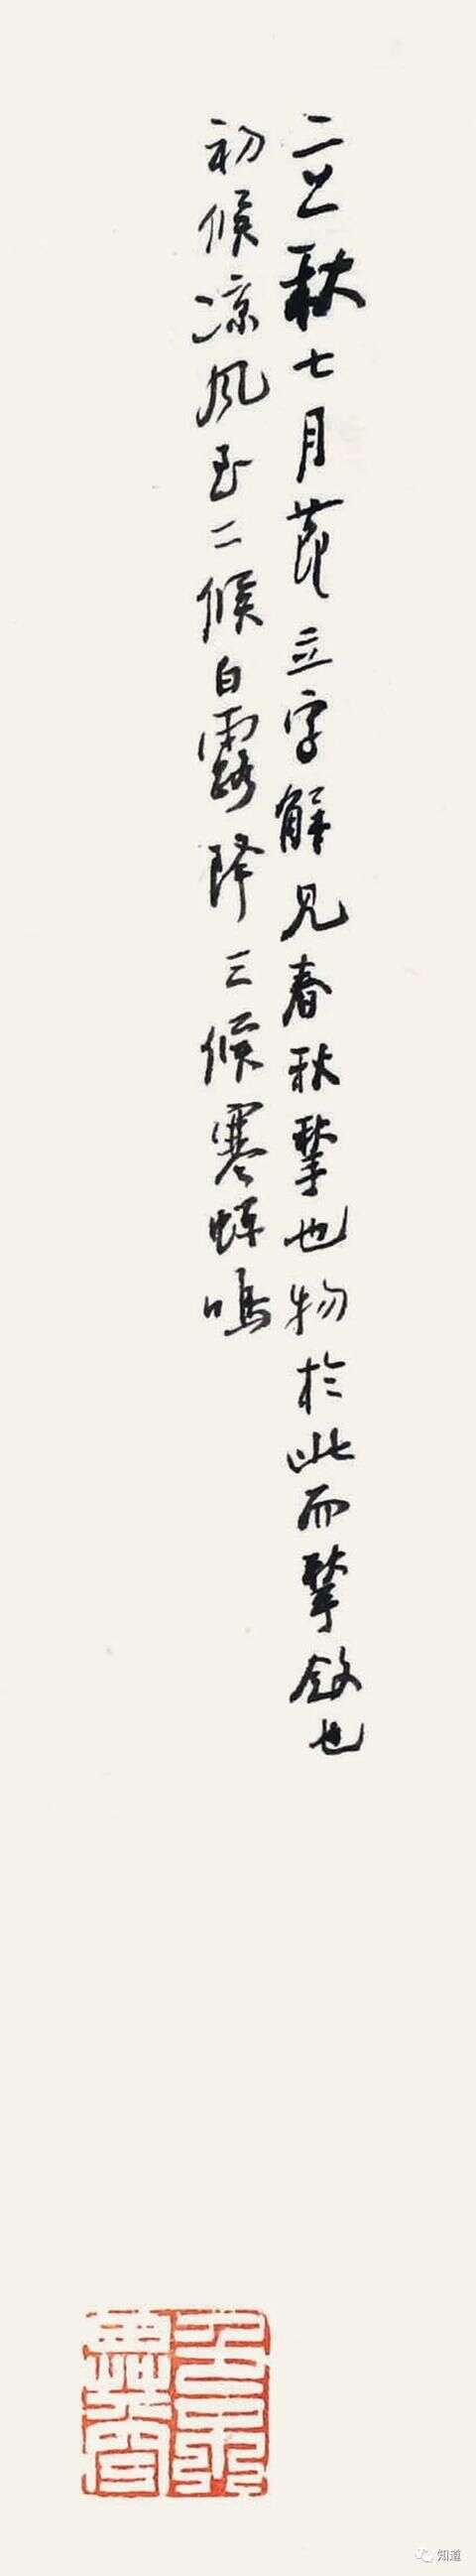 立秋七月節立字解見春秋揫也物於此而揫斂也
初候凉風至二候白露降三候寒蟬鳴
知道